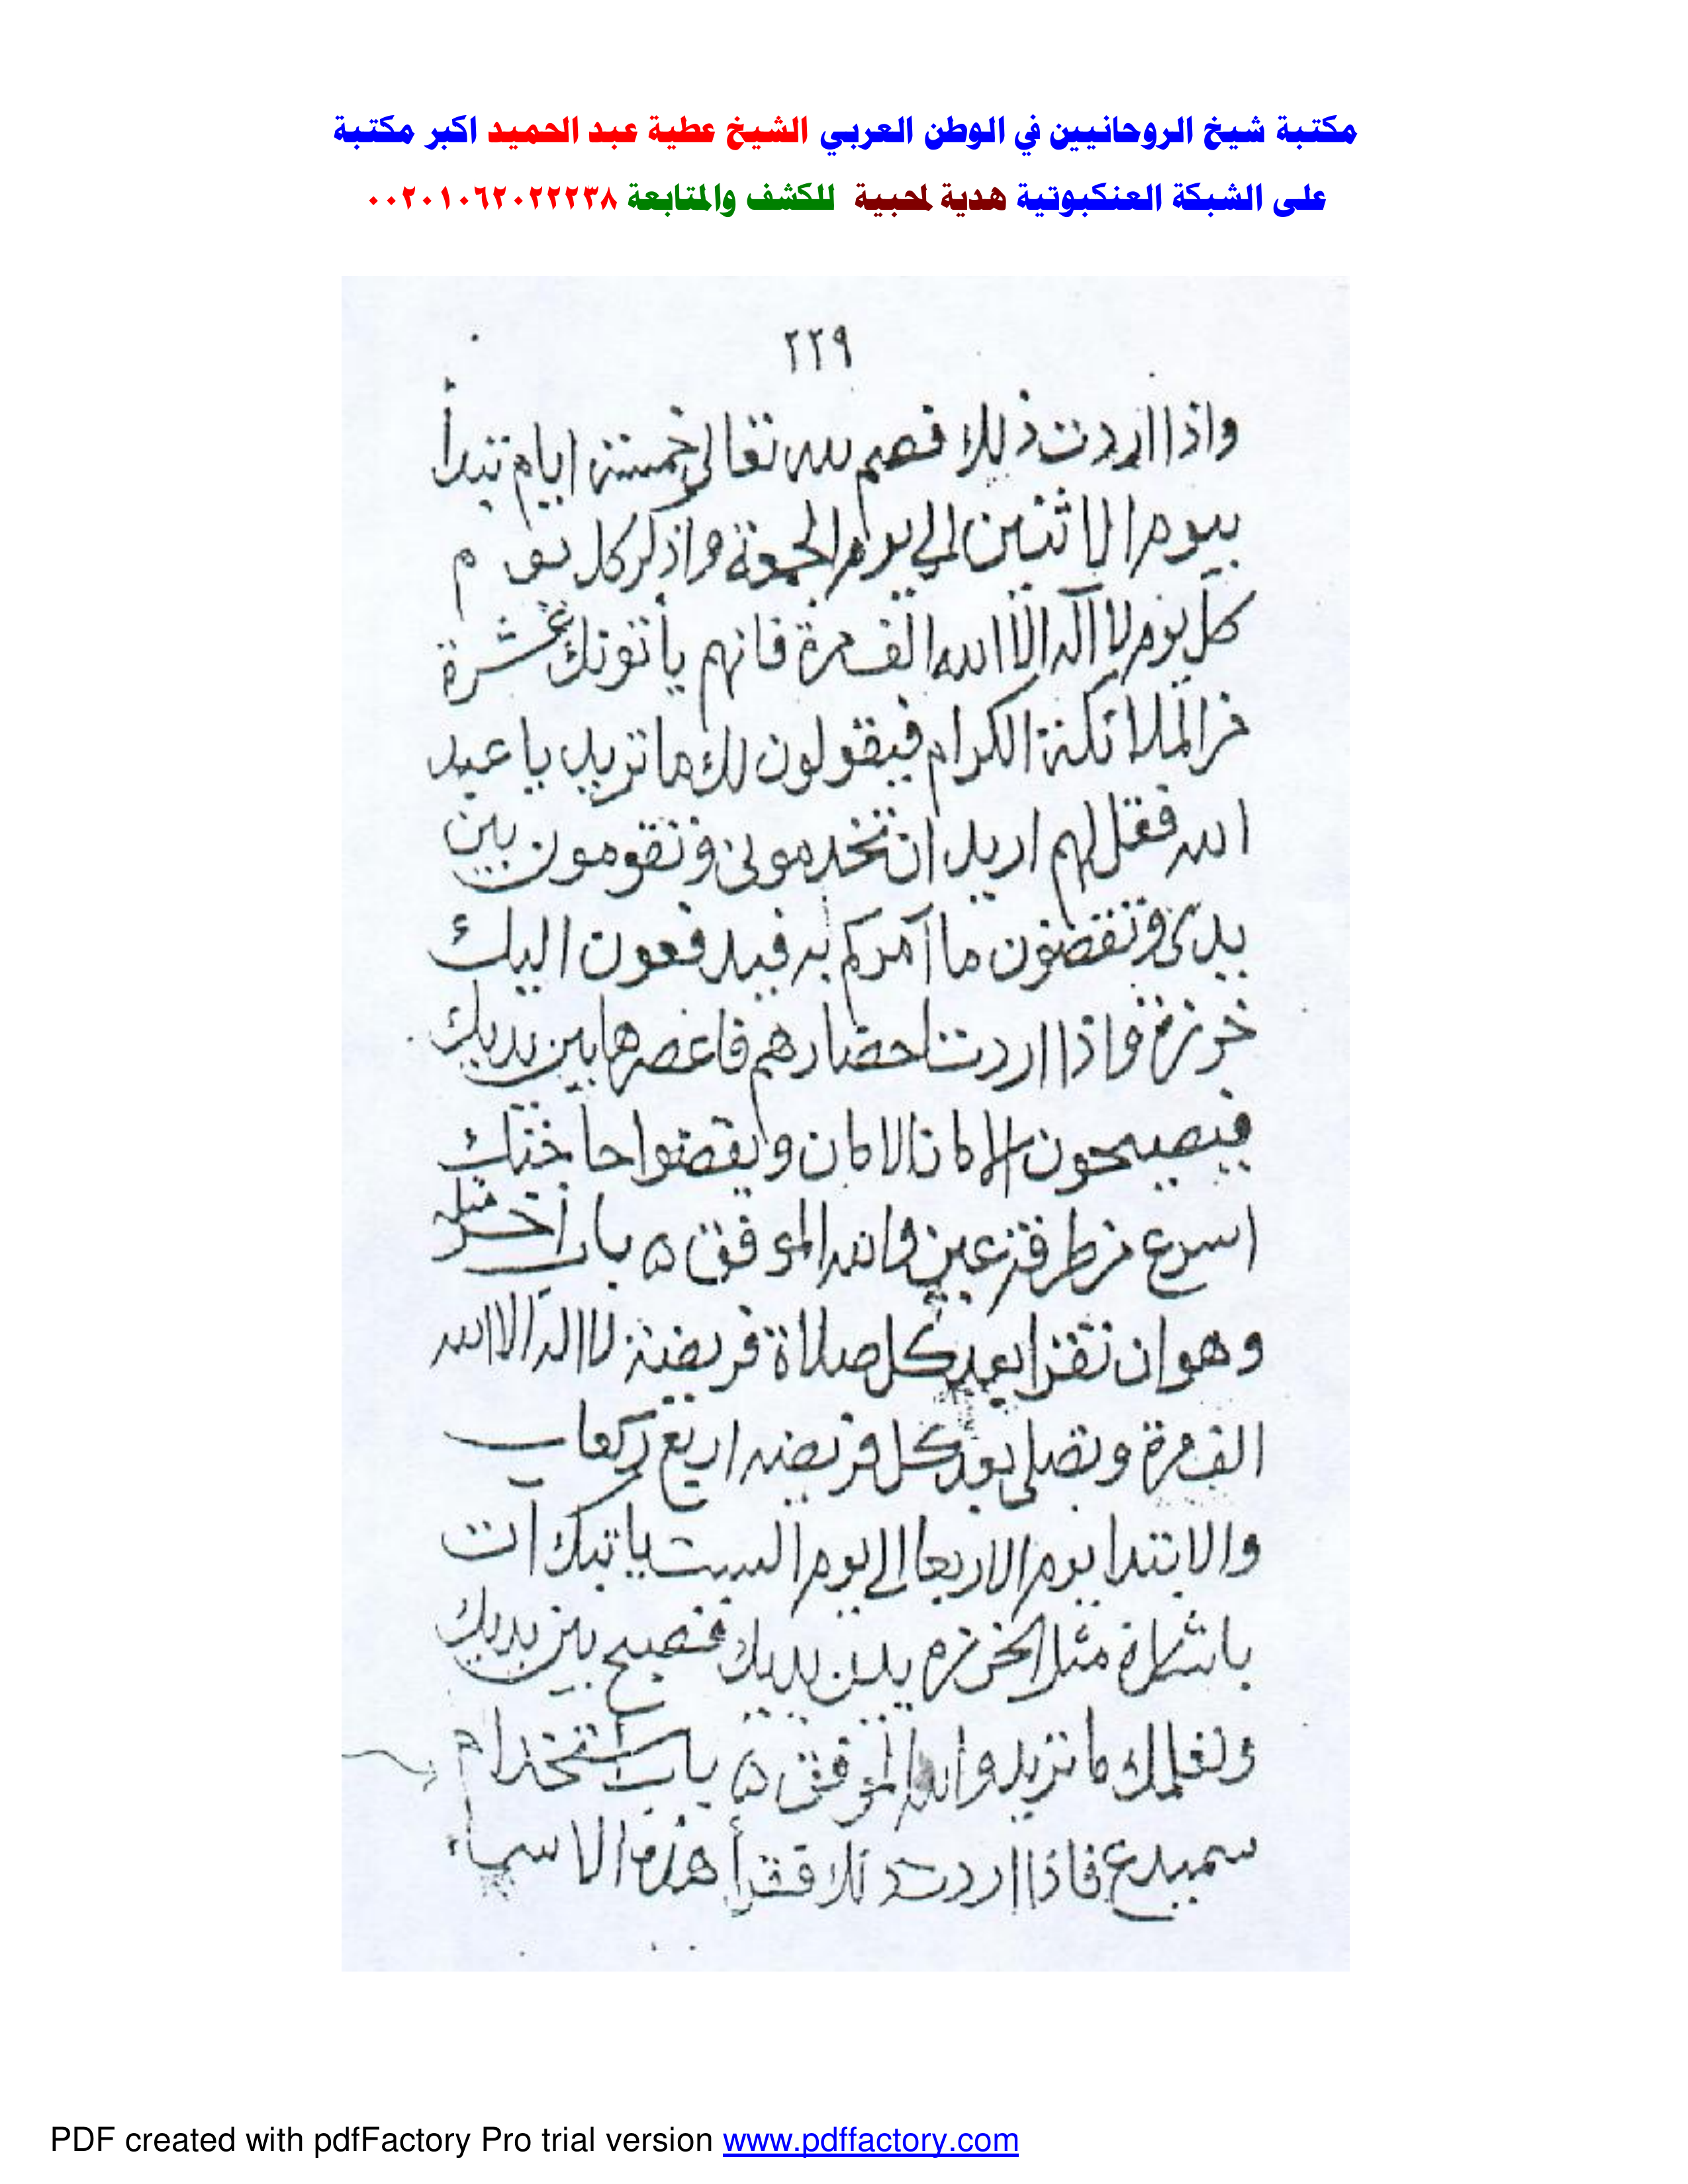 مكتبة شيخ الروحانيين في الوطن العربي الشيخ عطية عبد الحميد اكبر مكتبة
على الشبكة العنكبوتية هدية لمحبية للكشف والمتابعة ٠٠٢٠١٠٦٢٠٢٢٢٣٨
٢٢٩
واذا اردت ذلك فصم لله تعالى خمسة ايام تبدأ
بيوم الاثنين الى يوم الجمعة واذكر كل يوم
كل يوم لا اله الا الله الف مرة فانهم يأتونك عشرة
من الملائكة الكرام فيقولون لك ما تريد يا عبد
الله فقل لهم اريد ان تخدمونى وتقومون بين
يدى وتقضون ما آمركم به فيدفعون اليك
خرزة واذا اردت احضارهم فاعصرها بين يديك
فيصيحون الامان الامان ويقضوا حاجتك
اسرع من طرفة عين والله الموفق ٥ باب آخر مثله
وهو ان تقرا بعد كل صلاة فريضة لا اله الا الله
الف مرة وتصلى بعد كل فريضه اربع ركعات
والابتدا يوم الاربعا الى يوم السبت ياتيك آت
باشارة مثل الخرزه بين يديك فتصيح بين يديك
وتعلمك ما تريد والله الموفق ٥ باب استخدام
سميدع فاذا اردت ذلك فتقرأ هذه الاسماء
PDF created with pdfFactory Pro trial version www.pdffactory.com